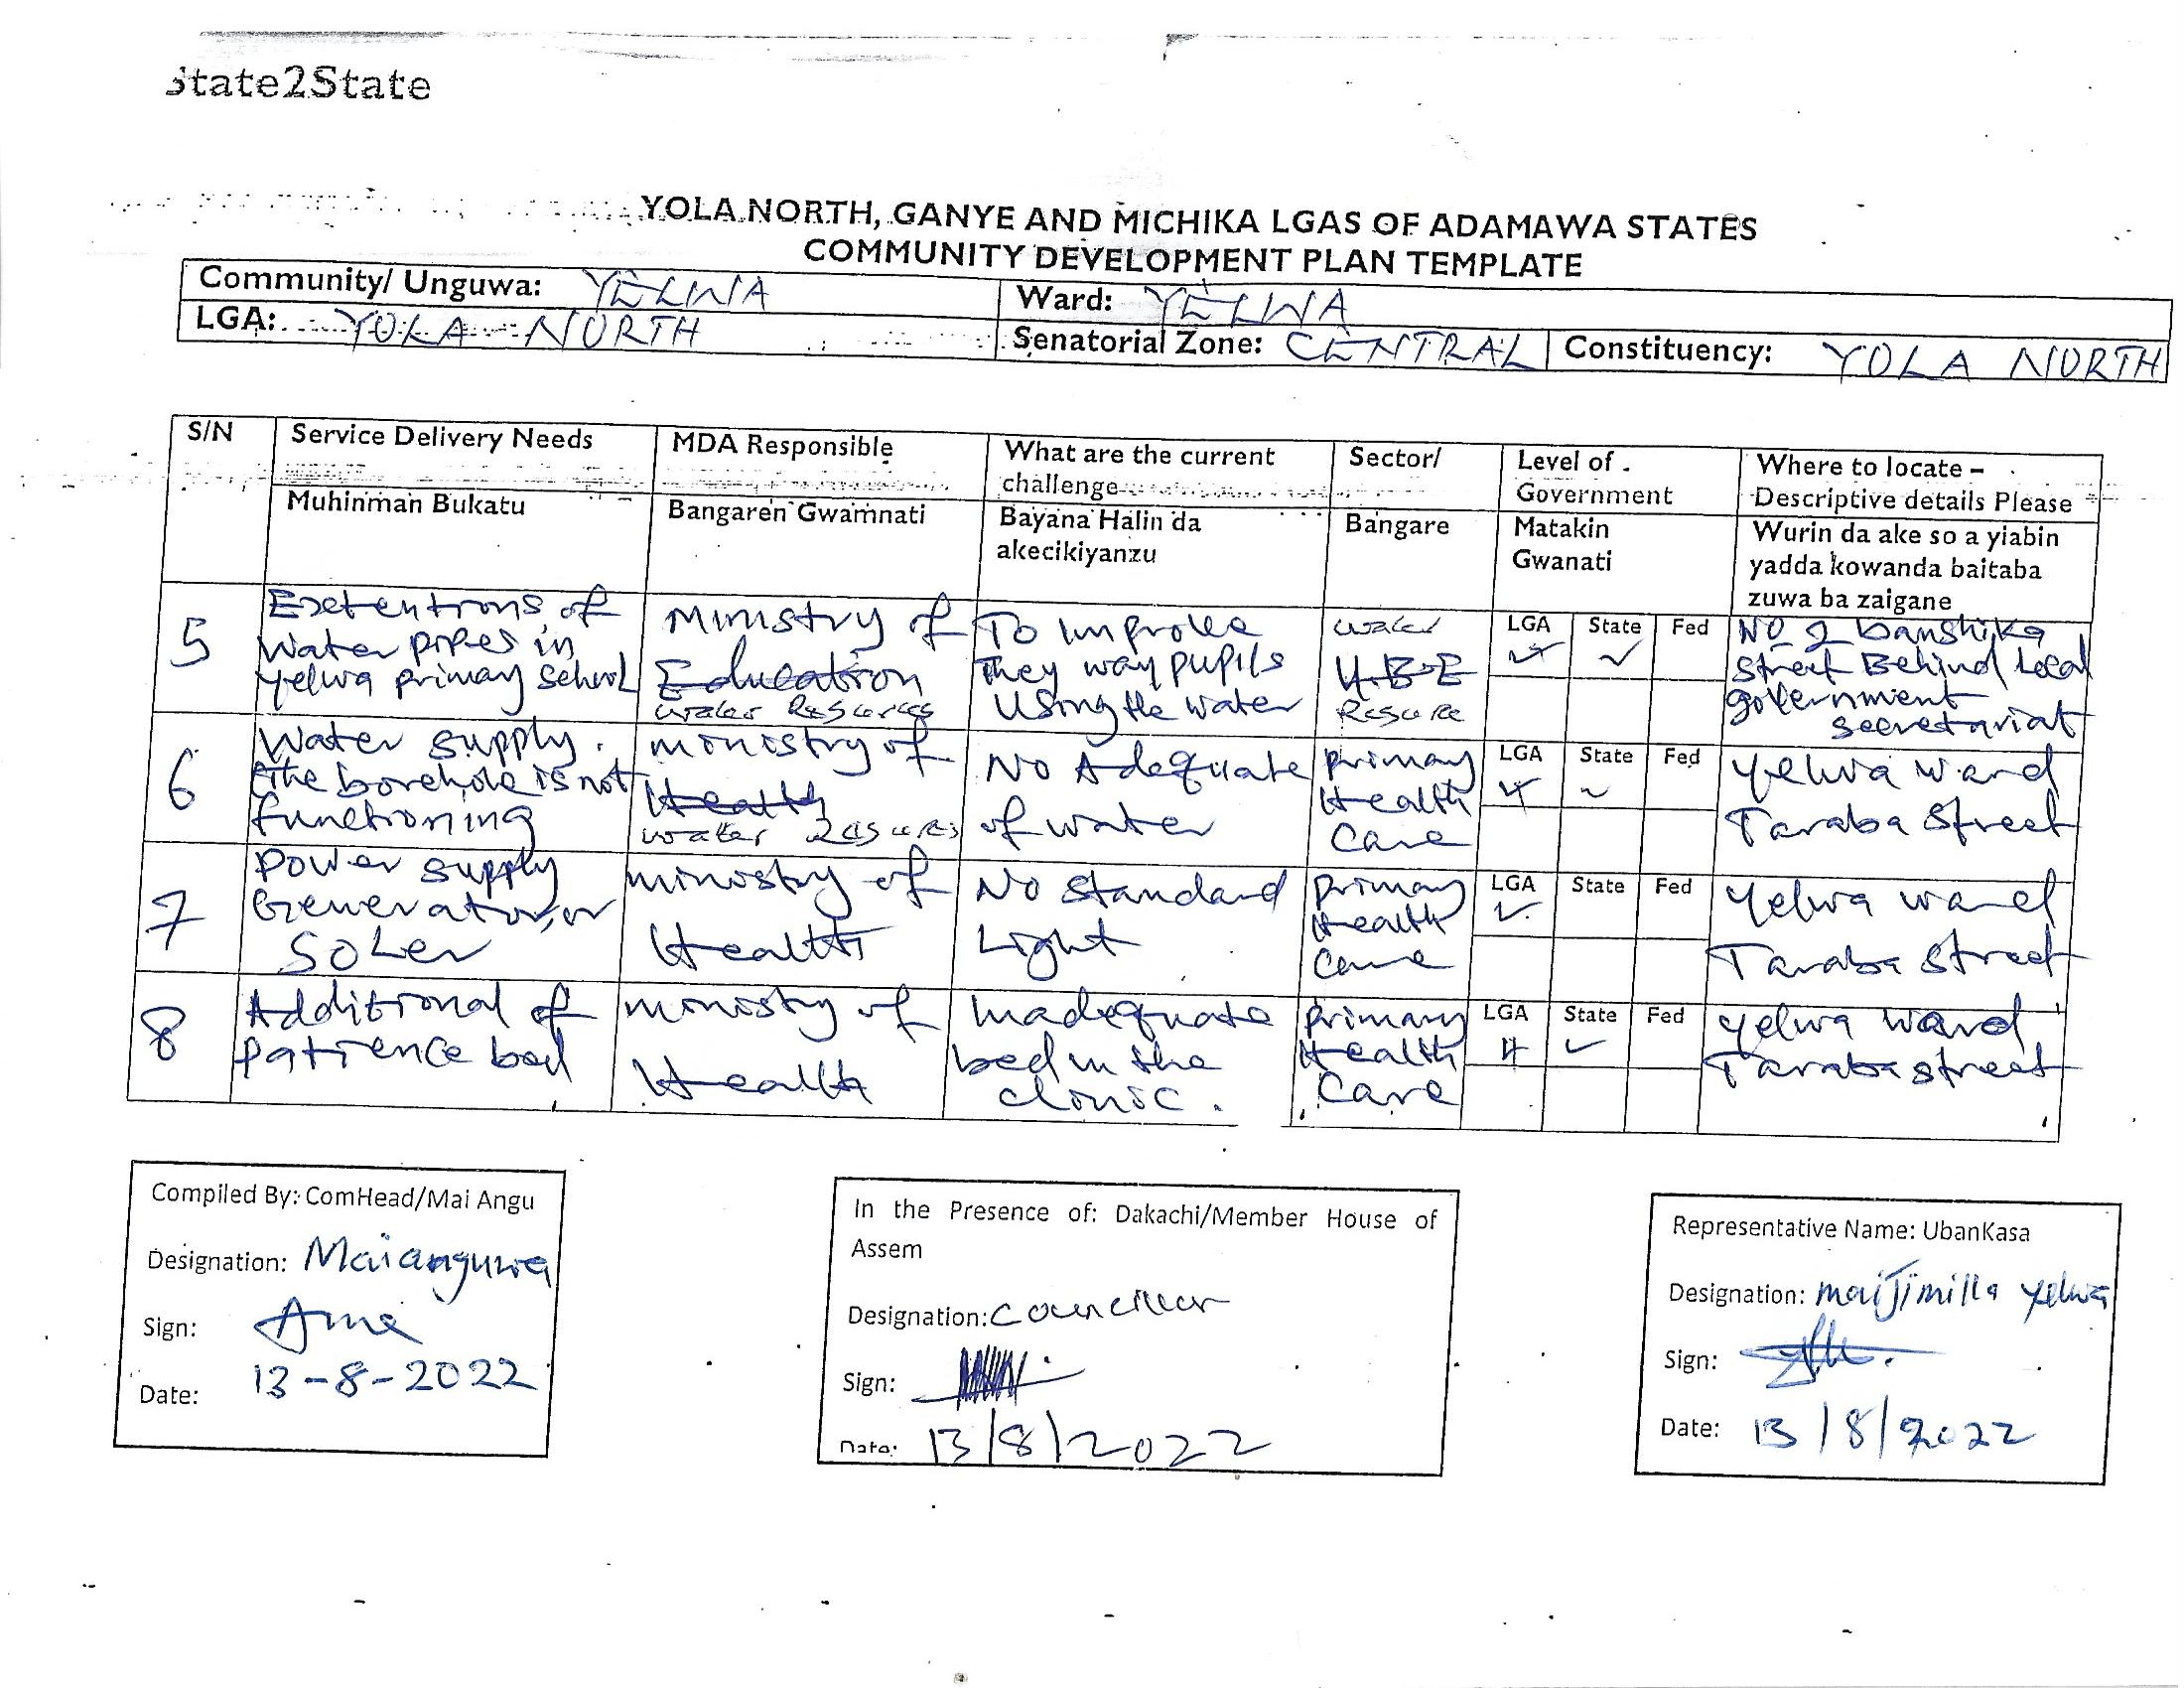 State2State
YOLA NORTH, GANYE AND MICHIKA LGAS OF ADAMAWA STATES
COMMUNITY DEVELOPMENT PLAN TEMPLATE
Community/ Unguwa: YELWA Ward: YELWA
LGA: YOLA NORTH Senatorial Zone: CENTRAL Constituency: YOLA NORTH
S/N Service Delivery Needs MDA Responsible What are the current challenge Sector/ Level of Government Where to locate – Descriptive details Please
Muhinman Bukatu Bangaren Gwamnati Bayana Halin da akecikiyanzu Bangare Matakin Gwanati Wurin da ake so a yiabin yadda kowanda baitaba zuwa ba zaigane
5
Extentions of
Water pipes in
Yelwa primary school
Ministry of
Education
water Resources
To improve
They way pupils
Using the water
water
U.B.E
Resource
LGA State Fed
✓ ✓
NO 2 banshika
Street Behind Local
government
secretariat
6
Water supply.
the borehole is not
functioning
ministry of
Health
water
No Adequate
of water
primary
Health
Care
LGA State Fed
✓ ✓
Yelwa ward
Taraba Street
7
Power supply
Generator, or
SOLer
ministry of
Health
No Standard
Light
primary
Health
Care
LGA State Fed
✓
Yelwa ward
Taraba Street
8
Additional of
patience bed
ministry of
Health
Inadequate
bed in the
clinic.
primary
Health
Care
LGA State Fed
✓
Yelwa ward
Taraba street
Compiled By: ComHead/Mai Angu
Designation: Maianguwa
Sign:
Date: 13-8-2022
In the Presence of: Dakachi/Member House of
Assem
Designation: Councillor
Sign:
Date: 13/8/2022
Representative Name: UbanKasa
Designation: maiJimilla Yelwa
Sign:
Date: 13/8/2022